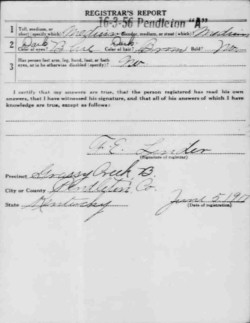 REGISTRAR'S REPORT
16-3-56 Pendleton "A"
1 Tall, medium, or short (specify which)? Medium Slender, medium, or stout (which)? Medium
2 Color of eyes? Dark Blue Color of hair? Dark Brown Bald? No
3 Has person lost arm, leg, hand, foot, or both eyes, or is he otherwise disabled (specify)? No
I certify that my answers are true, that the person registered has read his own
answers, that I have witnessed his signature, and that all of his answers of which I have
knowledge are true, except as follows:
E. Lender
(Signature of registrar)
Precinct Grassy Creek
City or County Pendleton Co.
State Kentucky
June 5, 191
(Date of registration)